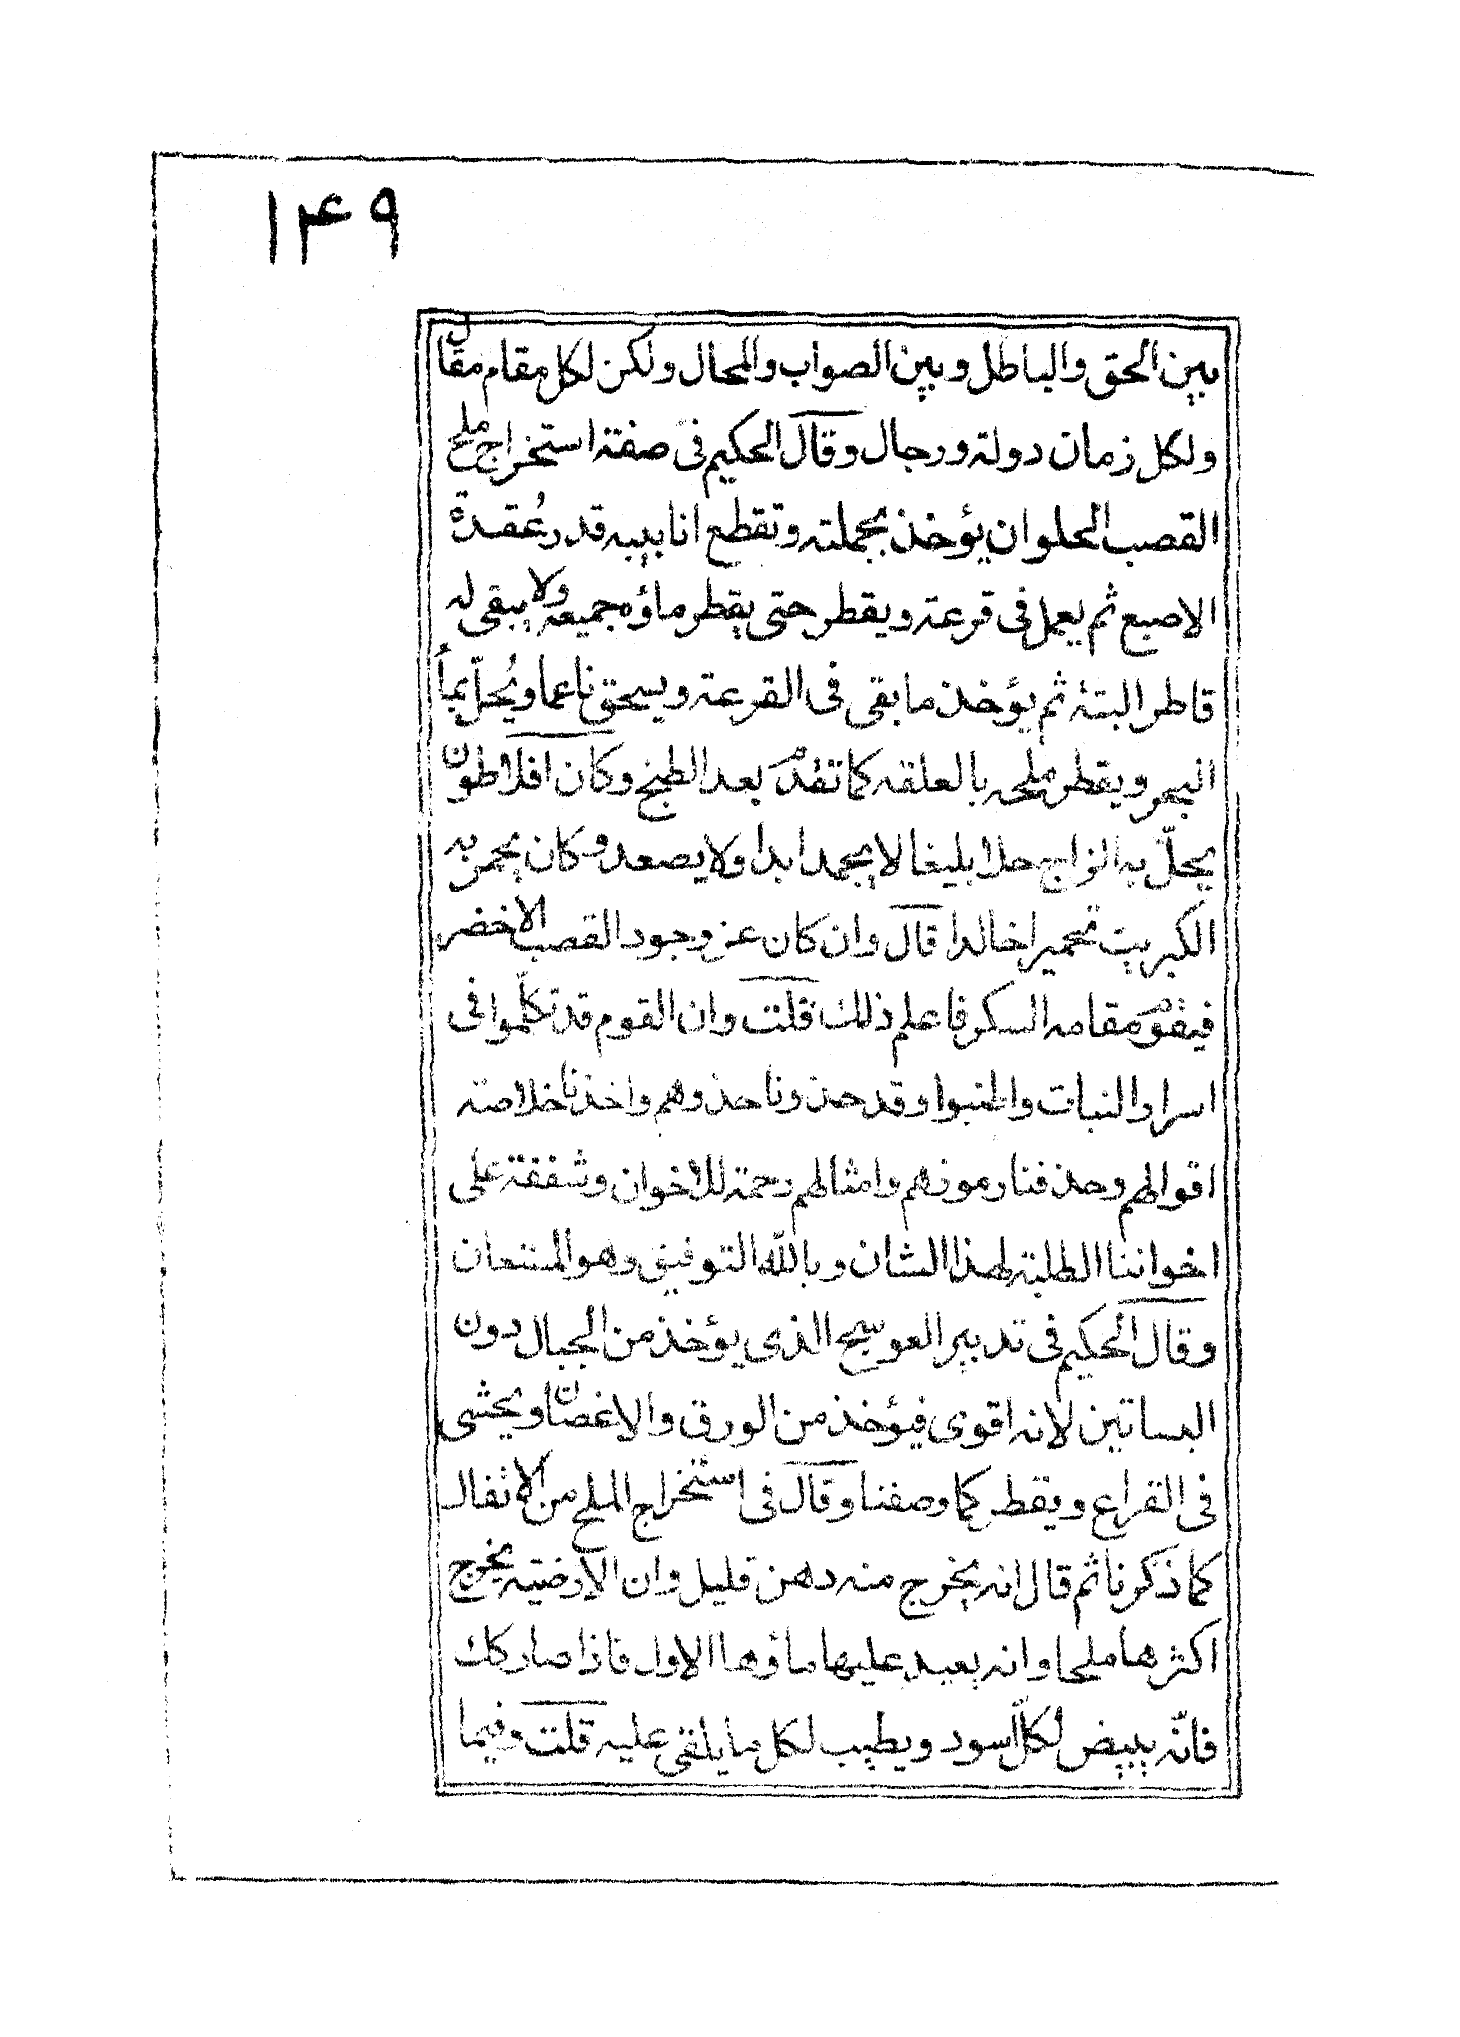 ۱۴۹
بين الحق والباطل وبين الصواب والمحال ولكن لكل مقام مقال
ولكل زمان دولة ورجال وقال الحكيم فى صفة استخراج ملح
القصب الحلوان يؤخذ بجملته وتقطع انابيبه قدر عُقدة
الاصبع ثم يعمل فى قرعة ويقطر حتى يقطر ماؤه جميعه ولا يبقى له
قاطر البتة ثم يؤخذ ما بقى فى القرعة ويسحق ناعما ويُحلّ بمأ
البحر ويقطر ملحه بالعلقه كما تقدّم بعد الطبخ وكان افلاطون
يحلّ به الزاج حلا بليغا لا يجمد ابدا ولا يصعد وكان يحمر به
الكبريت تحميرا خالدا قال وان كان عز وجود القصب الاخضر
فيقوم مقامه السكر فاعلم ذلك قلت وان القوم قد تكلّموا فى
اسرار النبات والحيوا وقد حذونا حذوهم واخذنا خلاصة
اقوالهم وحذفنا رموزهم وامثالهم رحمة للاخوان وشفقة على
اخواننا الطلبة لهذا الشان وبالله التوفيق وهو المستعان
وقال الحكيم فى تدبير العوسج الذى يؤخذ من الجبال دون
البساتين لانه اقوى فيؤخذ من الورق والاغصان ويحشى
فى القراع ويقطر كما وصفنا وقال فى استخراج الملح من الاثفال
كما ذكرنا ثم قال انه يخرج منه دهن قليل وان الارضية يخرج
اكثرها ملحا وانه يعيد عليها ماؤها الاول فاذا صار كك
فانّه يبيض لكلّ اسود ويطيب لكل ما يلقى عليه قلت وفيما